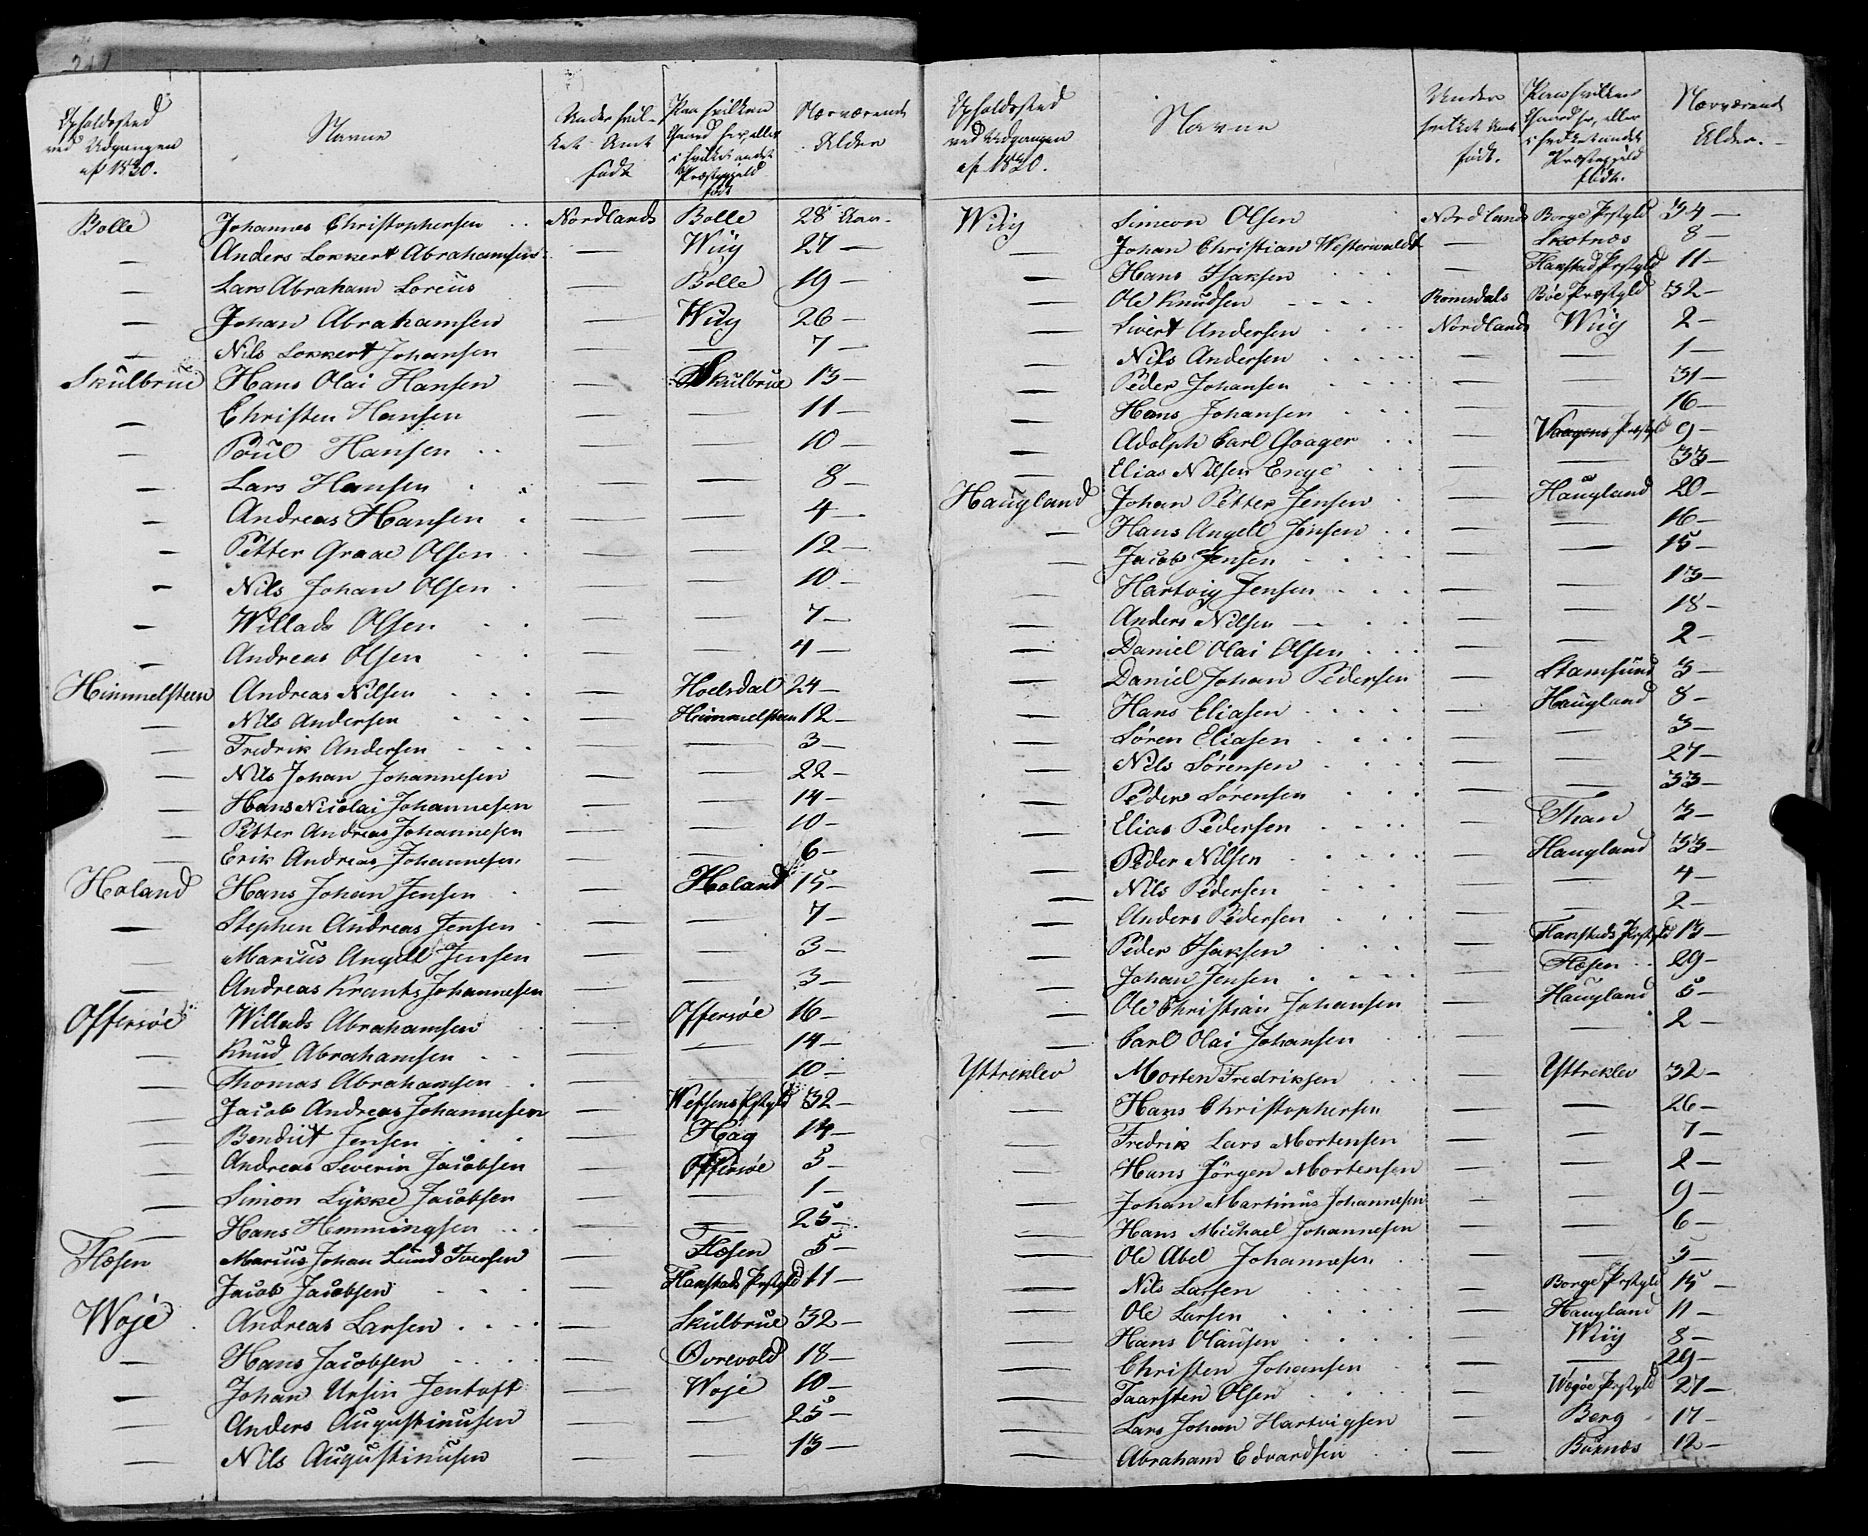 Opholdssted ved Udgangen af 1820. | Navne | Under hvilket Amt født | Paa hvilken Gaard her, eller i hvilket andet Præstegjeld født | Nærværende Alder
Bolle | Johannes Christophersen | Nordlands | Bolle | 28 Aar
— | Anders Lokkert Abrahamsen | — | Wiig | 27 —
— | Lars Abraham Loreus | — | Bolle | 19 —
— | Johan Abrahamsen | — | Wiig | 26 —
— | Nils Lokkert Johansen | — | — | 7 —
Skulbrue | Hans Olai Hansen | — | Skulbrue | 13 —
— | Christen Hansen | — | — | 11 —
— | Poul Hansen | — | — | 10 —
— | Lars Hansen | — | — | 8 —
— | Andreas Hansen | — | — | 4 —
— | Petter Graae Olsen | — | — | 12 —
— | Nils Johan Olsen | — | — | 10 —
— | Willads Olsen | — | — | 7 —
— | Andreas Olsen | — | — | 4 —
Himmelsteen | Andreas Nilsen | — | Hoelsdal | 24 —
— | Nils Andersen | — | Himmelsteen | 12 —
— | Fredrik Andersen | — | — | 3 —
— | Nils Johan Johannesen | — | — | 22 —
— | Hans Nicolai Johannesen | — | — | 14 —
— | Petter Andreas Johannesen | — | — | 10 —
— | Erik Andreas Johannesen | — | — | 6 —
Holand | Hans Johan Jensen | — | Holand | 15 —
— | Stephen Andreas Jensen | — | — | 7 —
— | Marcus Angell Jensen | — | — | 3 —
— | Andreas Krantz Johannesen | — | — | 3 —
Offersøe | Willads Abrahamsen | — | Offersøe | 16 —
— | Knud Abrahamsen | — | — | 14 —
— | Thomas Abrahamsen | — | — | 10 —
— | Jacob Andreas Johannesen | — | Wefsens Prstgld | 32 —
— | Bendict Jensen | — | Hag | 14 —
— | Andreas Severin Jacobsen | — | Offersøe | 5 —
— | Simon Lykke Jacobsen | — | — | 1 —
— | Hans Hemmingsen | — | — | 25 —
Flæsen | Marcus Johan Lund Iversen | — | Flæsen | 5 —
— | Jacob Jacobsen | — | Flakstads Prstgld | 11 —
Woje | Andreas Larsen | — | Skulbrue | 32 —
— | Hans Jacobsen | — | Ourevold | 18 —
— | Johan Ursin Jentoft | — | Woje | 10 —
— | Anders Augustinusen | — | — | 25 —
— | Nils Augustinusen | — | — | 13 —
Opholdssted ved Udgangen af 1820. | Navne | Under hvilket Amt født. | Paa hvilken Gaard her, eller i hvilket andet Præstegjeld født. | Nærværende Alder.
Wiig | Simeon Olsen | Nordlands | Borge Prstgld | 34 —
— | Johan Christian Westerwaldt | — | Skotnæs | 8 —
— | Hans Isaksen | — | Flakstad Prstgld | 11 —
— | Ole Knudsen | Romsdals | Bøe Præstgld | 32 —
— | Sivert Andersen | Nordlands | Wiig | 2 —
— | Nils Andersen | — | — | 1 —
— | Peder Johansen | — | — | 31 —
— | Hans Johansen | — | — | 16 —
— | Adolph Carl Gaager | — | Vaagens Prstgld | 9 —
— | Elias Nilsen Enge | — | — | 33 —
Haugland | Johan Petter Jensen | — | Haugland | 20 —
— | Hans Angell Jensen | — | — | 16 —
— | Jacob Jensen | — | — | 15 —
— | Hartvig Jensen | — | — | 13 —
— | Anders Nilsen | — | — | 18 —
— | Daniel Olai Olsen | — | — | 2 —
— | Daniel Johan Pedersen | — | Stamsund | 3 —
— | Hans Eliasen | — | Haugland | 8 —
— | Søren Eliasen | — | — | 3 —
— | Nils Sørensen | — | — | 27 —
— | Peder Sørensen | — | — | 33 —
— | Elias Pedersen | — | Than | 3 —
— | Peder Nilsen | — | Haugland | 33 —
— | Nils Pedersen | — | — | 4 —
— | Anders Pedersen | — | — | 2 —
— | Peder Isaksen | — | Flakstads Prstgld | 13 —
— | Johan Jensen | — | Flæsen | 29 —
— | Ole Christian Johansen | — | Haugland | 5 —
— | Carl Olai Johansen | — | — | 2 —
Yttreklev | Morten Fredriksen | — | Yttreklev | 32 —
— | Hans Christophersen | — | — | 26 —
— | Fredrik Lars Mortensen | — | — | 7 —
— | Hans Jørgen Mortensen | — | — | 2 —
— | Johan Martinus Johannesen | — | — | 9 —
— | Hans Michael Johannesen | — | — | 6 —
— | Ole Abel Johannesen | — | — | 3 —
— | Nils Larsen | — | Borge Prstgld | 15 —
— | Ole Larsen | — | Haugland | 11 —
— | Hans Olausen | — | Wiig | 8 —
— | Christen Johansen | — | — | 29 —
— | Taarsten Olsen | — | Wegøe Prstgld | 27 —
— | Lars Johan Hartvigsen | — | Berg | 17 —
— | Abraham Edvardsen | — | Buknæs | 12 —